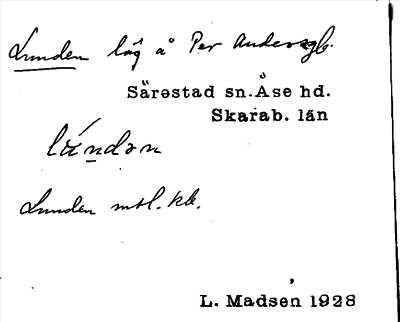 Lunden låg å Per Andersgb.
Särestad sn. Åse hd.
Skarab. län
Lunden
L. Madsen 1928